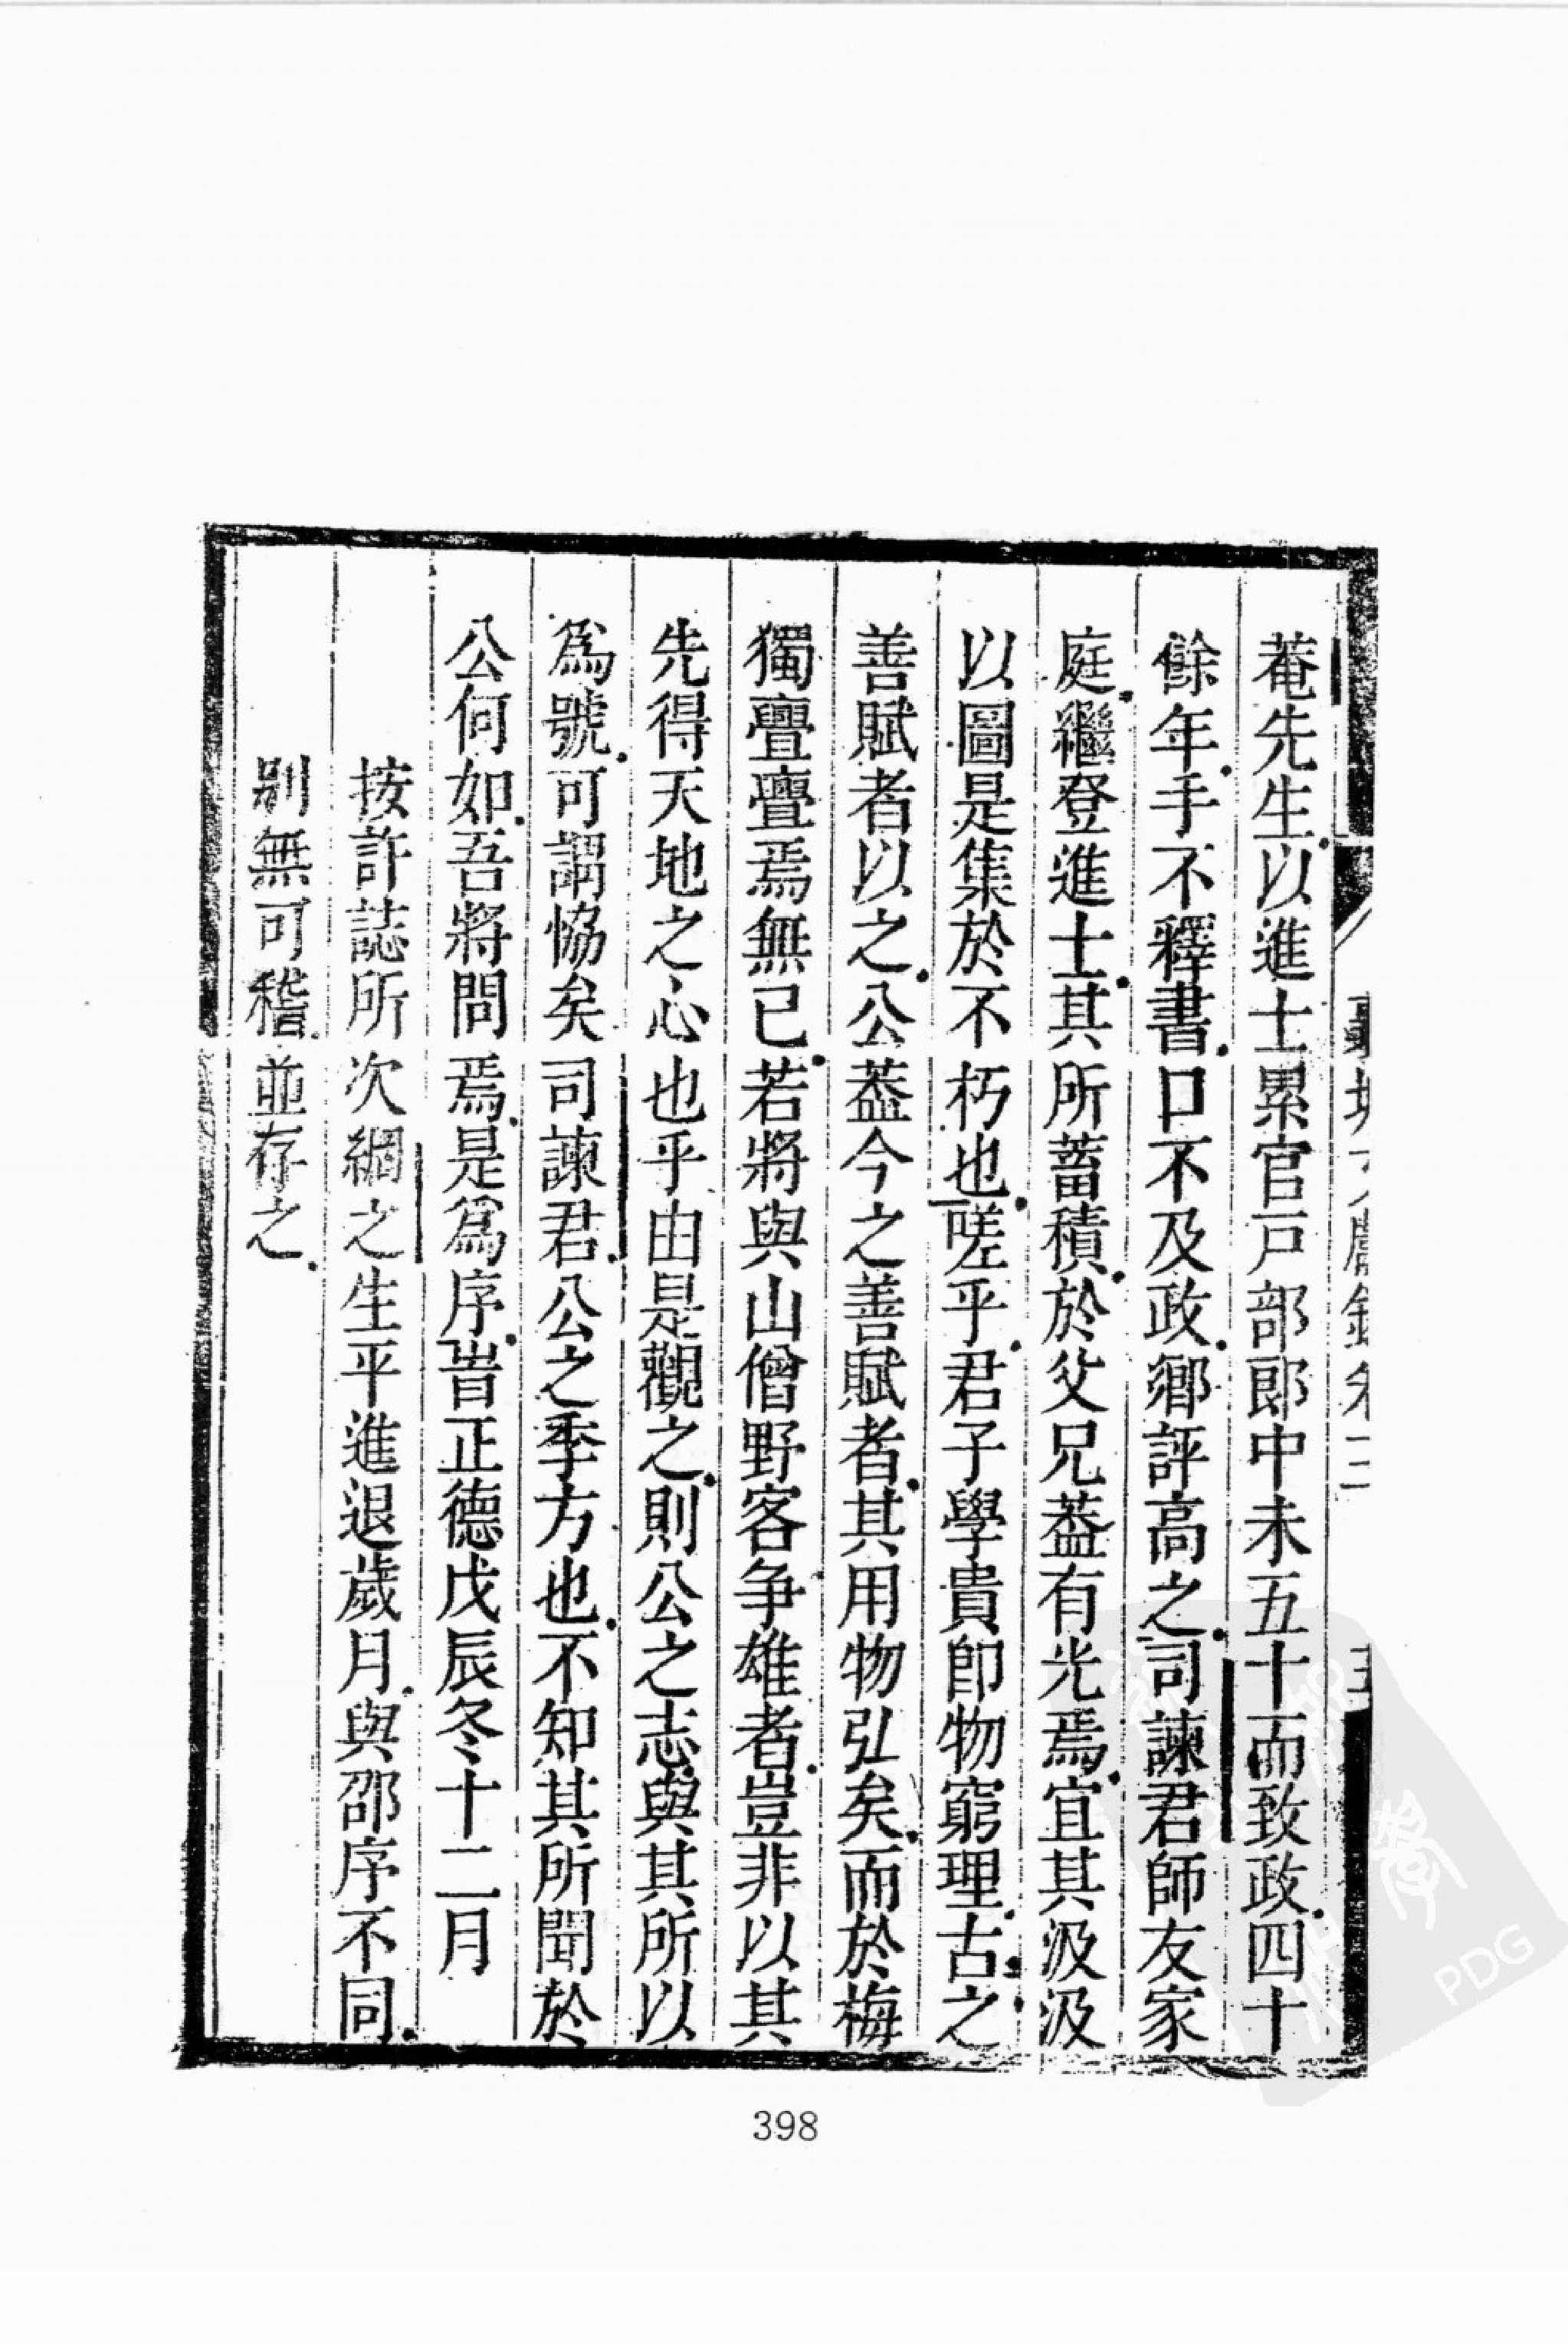 菴先生以進士累官戸部郎中未五十而致政四十
餘年手不釋書口不及政鄉評高之司諫君師友家
庭繼登進士其所蓄積於父兄葢有光焉宜其汲汲
以圖是集於不朽也嗟乎君子學貴卽物窮理古之
善賦者以之公葢今之善賦者其用物弘矣而於梅
獨亹亹焉無已若將與山僧野客争雄者豈非以其
先得天地之心也乎由是觀之則公之志與其所以
爲號可謂恊矣司諫君公之季方也不知其所聞於
公何如吾將問焉是爲序旹正德戊辰冬十二月
按許誌所次綱之生平進退歲月與邵序不同
别無可稽並存之
398
PDG